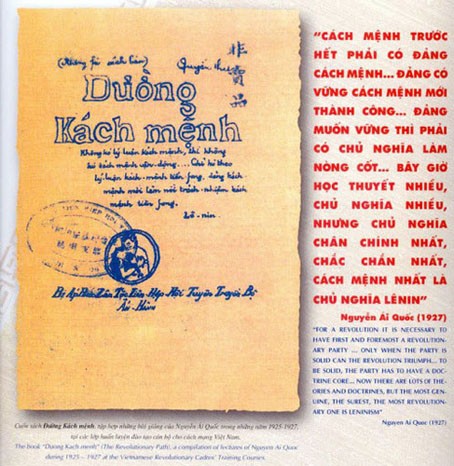 (Không fải sách bán)
非賣品
Đường
Kách mệnh
Không có lý luận kách mệnh, thì không
có kách mệnh vận động... Chỉ có theo
lý luận kách mệnh tiền fong, đảng kách
mệnh mới làm nổi trách nhiệm kách
mệnh tiền fong.
Lê-nin
Bị Áp Bức Zân Tộc Liên Hợp Hội Tuyên Truyền Bộ
Ấn Hành
Cuốn sách Đường Kách mệnh, tập hợp những bài giảng của Nguyễn Ái Quốc trong những năm 1925-1927,
tại các lớp huấn luyện đào tạo cán bộ cho cách mạng Việt Nam.
The book "Duong Kach menh" (The Revolutionary Path), a compilation of lectures of Nguyen Ai Quoc
during 1925 - 1927 at the Vietnamese Revolutionary Cadres' Training Courses.
"CÁCH MỆNH TRƯỚC
HẾT PHẢI CÓ ĐẢNG
CÁCH MỆNH... ĐẢNG CÓ
VỮNG CÁCH MỆNH MỚI
THÀNH CÔNG... ĐẢNG
MUỐN VỮNG THÌ PHẢI
CÓ CHỦ NGHĨA LÀM
NÒNG CỐT... BÂY GIỜ
HỌC THUYẾT NHIỀU,
CHỦ NGHĨA NHIỀU,
NHƯNG CHỦ NGHĨA
CHÂN CHÍNH NHẤT,
CHẮC CHẮN NHẤT,
CÁCH MỆNH NHẤT LÀ
CHỦ NGHĨA LÊNIN"
Nguyễn Ái Quốc (1927)
"FOR A REVOLUTION IT IS NECESSARY TO
HAVE FIRST AND FOREMOST A REVOLUTION-
ARY PARTY ... ONLY WHEN THE PARTY IS
SOLID CAN THE REVOLUTION TRIUMPH... TO
BE SOLID, THE PARTY HAS TO HAVE A DOC-
TRINE CORE... NOW THERE ARE LOTS OF THE-
ORIES AND DOCTRINES, BUT THE MOST GEN-
UINE, THE SUREST, THE MOST REVOLUTION-
ARY ONE IS LENINISM"
Nguyen Ai Quoc (1927)